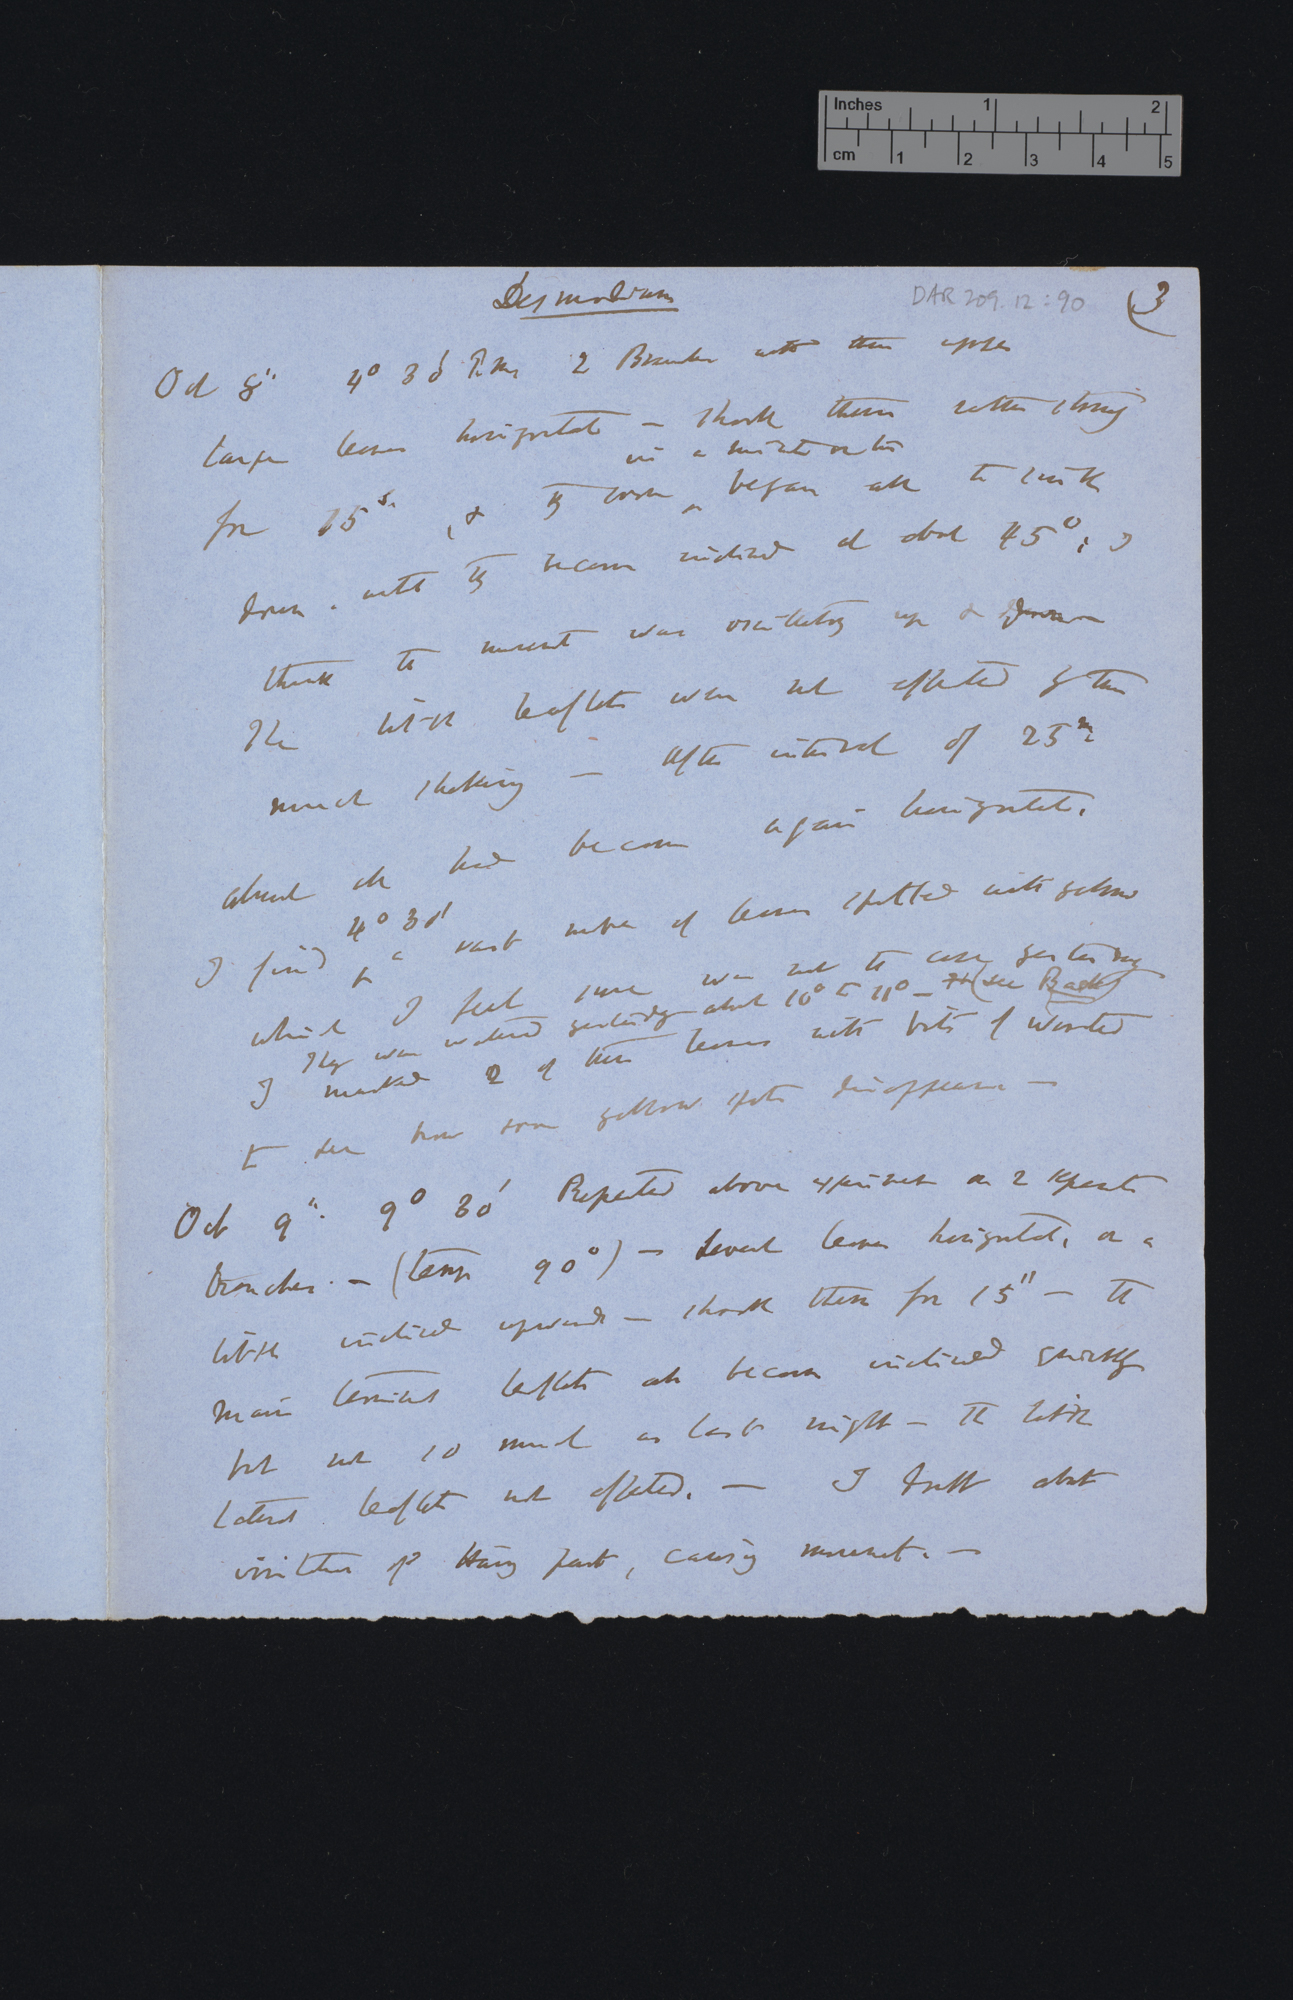 Inches 1 2
cm 1 2 3 4 5
Desmodium
DAR 209.12:90
(3
Oct 8" 4° 30' P.m. 2 Branches with their upper
large leaves horizontal — shook them rather strongly
in a minute or two
for 15s. , & they soon ^ began all to sink
down. until they became inclined at about 45°; I
think the movement was oscillatory up & down
The little leaflets were not affected by this
much shaking — After interval of 25m
almost all had become again horizontal.
4° 30'
I find ^ a vast number of leaves spotted with yellow
which I feel sure was not the case yesterday
They were watered yesterday about 10° to 11° — (see Back)
I marked 2 of these leaves with bits of Worsted
to see how soon yellow spots disappear —
Oct 9". 9° 30' Repeated above experiment on 2 separate
branches. — (temp 90°) — Several leaves horizontal, or a
little inclined upwards — shook them for 15" — The
main terminal leaflets all became inclined quickly
but not so much as last night — The little
lateral leaflets not affected. — I doubt about
of being part, causing movement. —